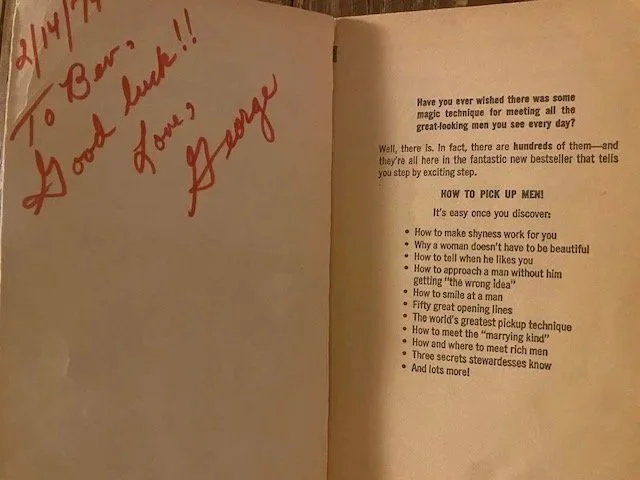 2/14/79
To Bev,
Good luck!!
Love,
George
Have you ever wished there was some
magic technique for meeting all the
great-looking men you see every day?
Well, there is. In fact, there are hundreds of them—and
they're all here in the fantastic new bestseller that tells
you step by exciting step.
HOW TO PICK UP MEN!
It's easy once you discover:
• How to make shyness work for you
• Why a woman doesn't have to be beautiful
• How to tell when he likes you
• How to approach a man without him
getting "the wrong idea"
• How to smile at a man
• Fifty great opening lines
• The world's greatest pickup technique
• How to meet the "marrying kind"
• How and where to meet rich men
• Three secrets stewardesses know
• And lots more!